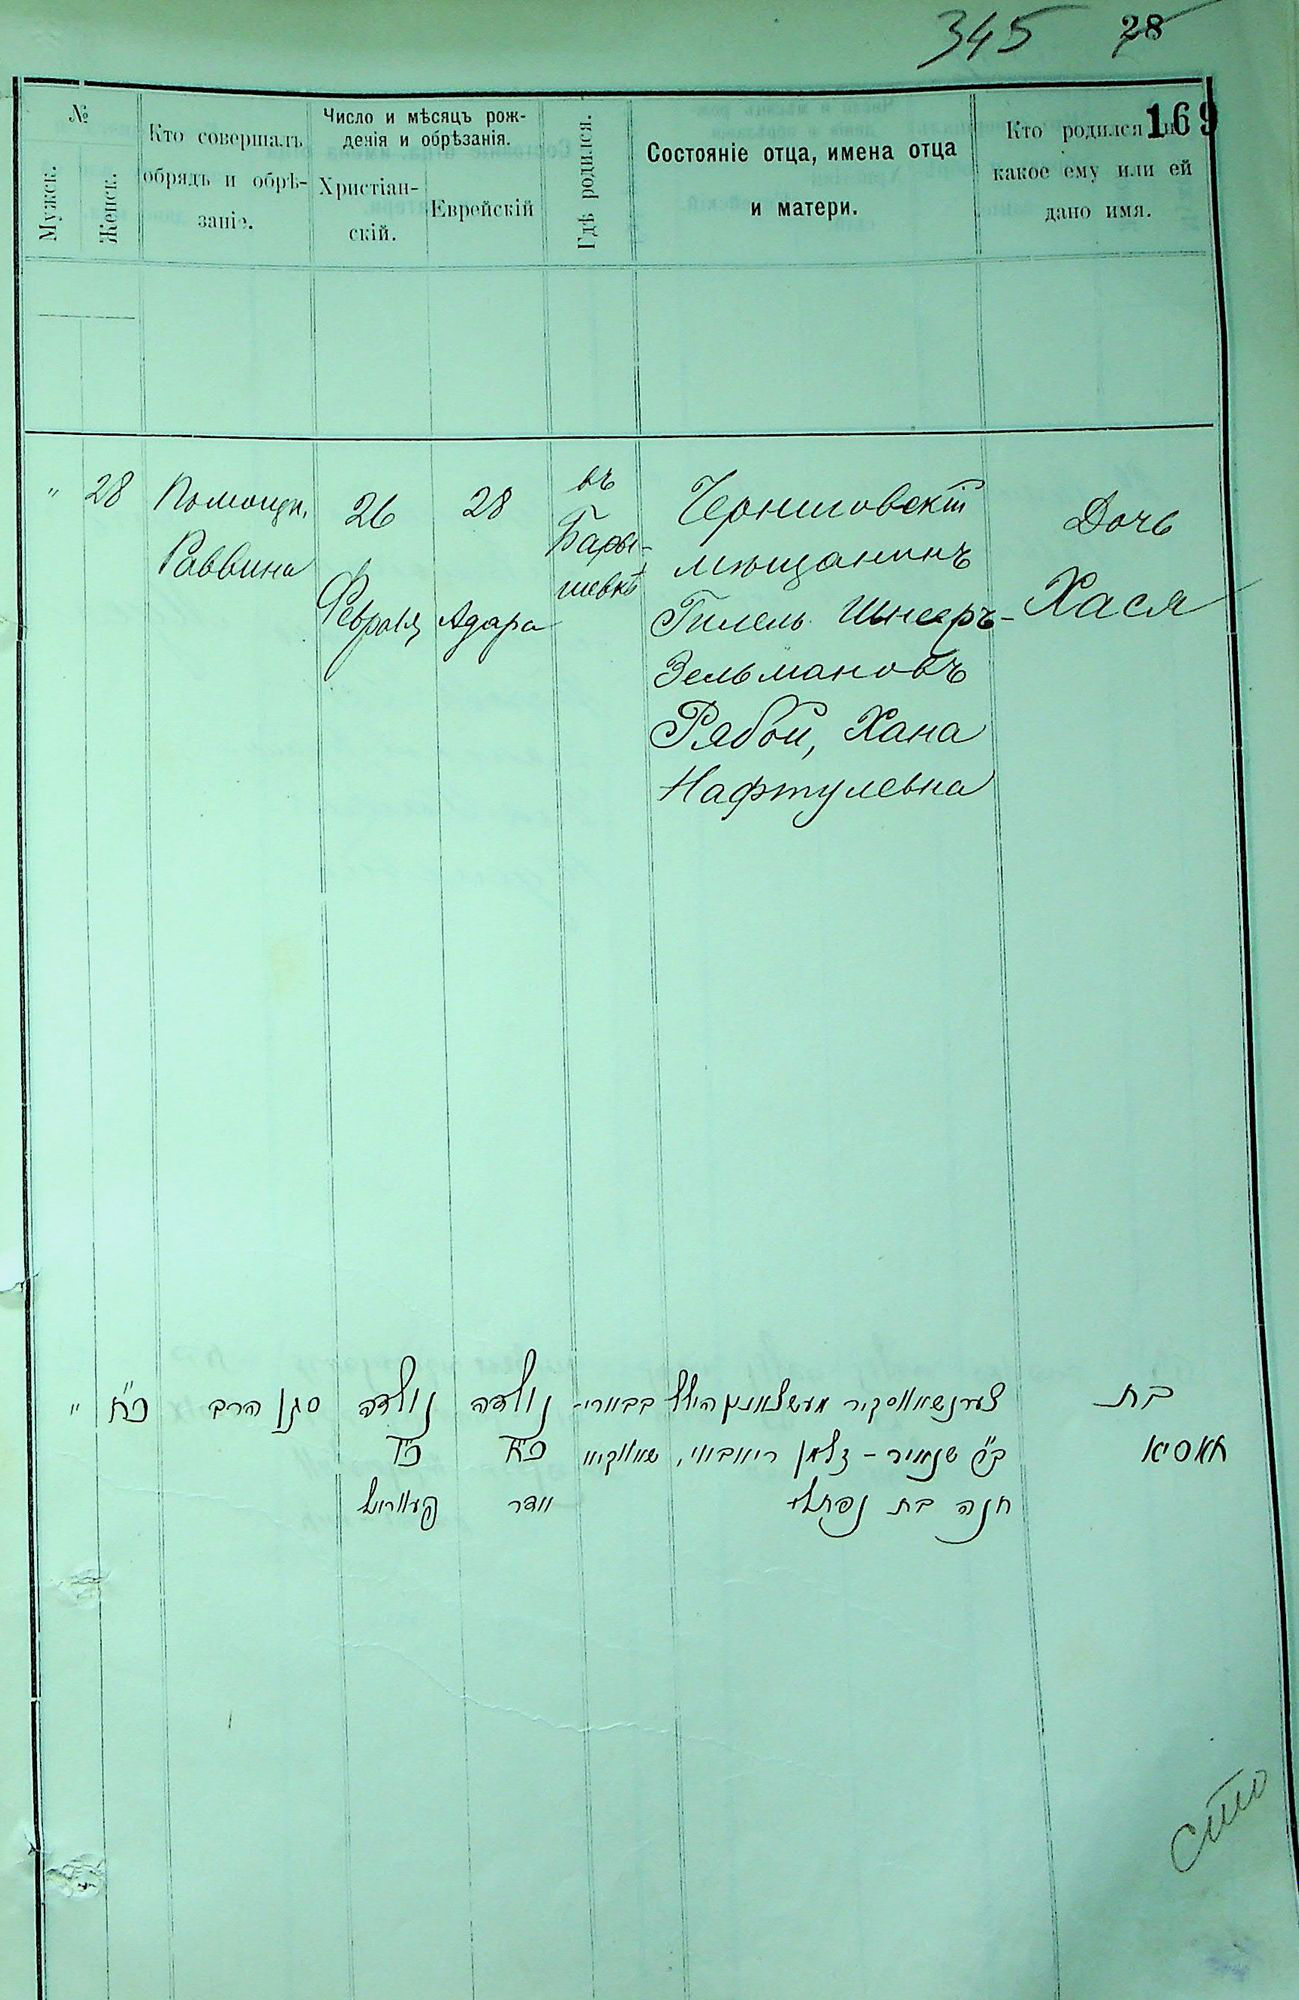 345 28
169
№
Мужск.
Женск.
Кто совершалъ
обрядъ и обрѣ-
заніе.
Число и мѣсяцъ рож-
денія и обрѣзанія.
Христіан-
скій.
Еврейскій
Гдѣ родился.
Состояніе отца, имена отца
и матери.
Кто родился и
какое ему или ей
дано имя.
"
28
Помощн.
Раввина
26
Февраля
28
Адара
въ
Бары-
шевкѣ
Черниговскій
мѣщанинъ
Гилель Шнееръ-
Зельмановъ
Рябой, Хана
Нафтулевна
Дочь
Хася
"
כ"ח
סגן הרב
נולדה
כ"ו
פעווראל
נולדה
כ"ח
אדר
הילל
שניאור - זלמן
חנה בת נפתלי
בת
חאסיא
сто